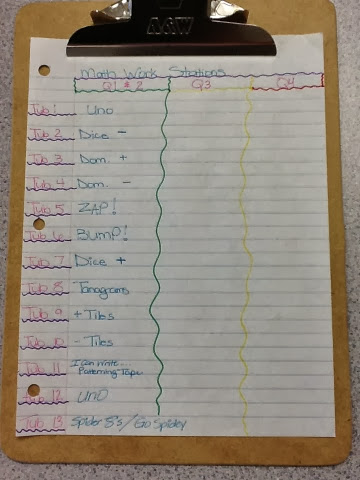 Math Work Stations
Q1 & 2 Q3 Q4
Tub 1 Uno
Tub 2 Dice -
Tub 3 Dom. +
Tub 4 Dom. -
Tub 5 ZAP!
Tub 6 BUMP!
Tub 7 Dice +
Tub 8 Tanagrams
Tub 9 + Tiles
Tub 10 - Tiles
Tub 11 I Can Write
Patterning Tape
Tub 12 UNO
Tub 13 Spider 8's / Go Spidey